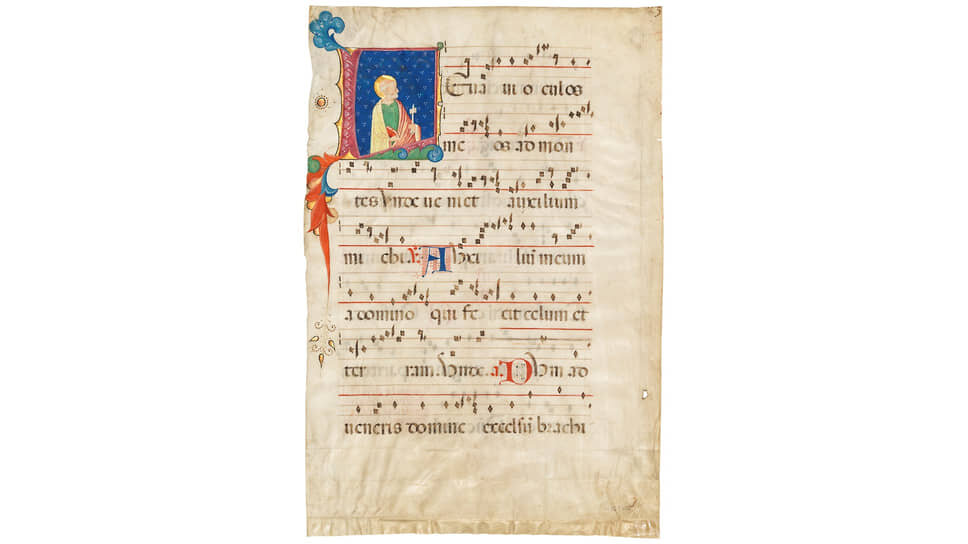 LEua ui o culos
me os ad mon
tes vnde ue niet auxilium
mi chi. V. Auxi liu meum
a domino qui fe cit celum et
ter ram. Vnde. a. DVm ad
ueneris domine excelsu brachi